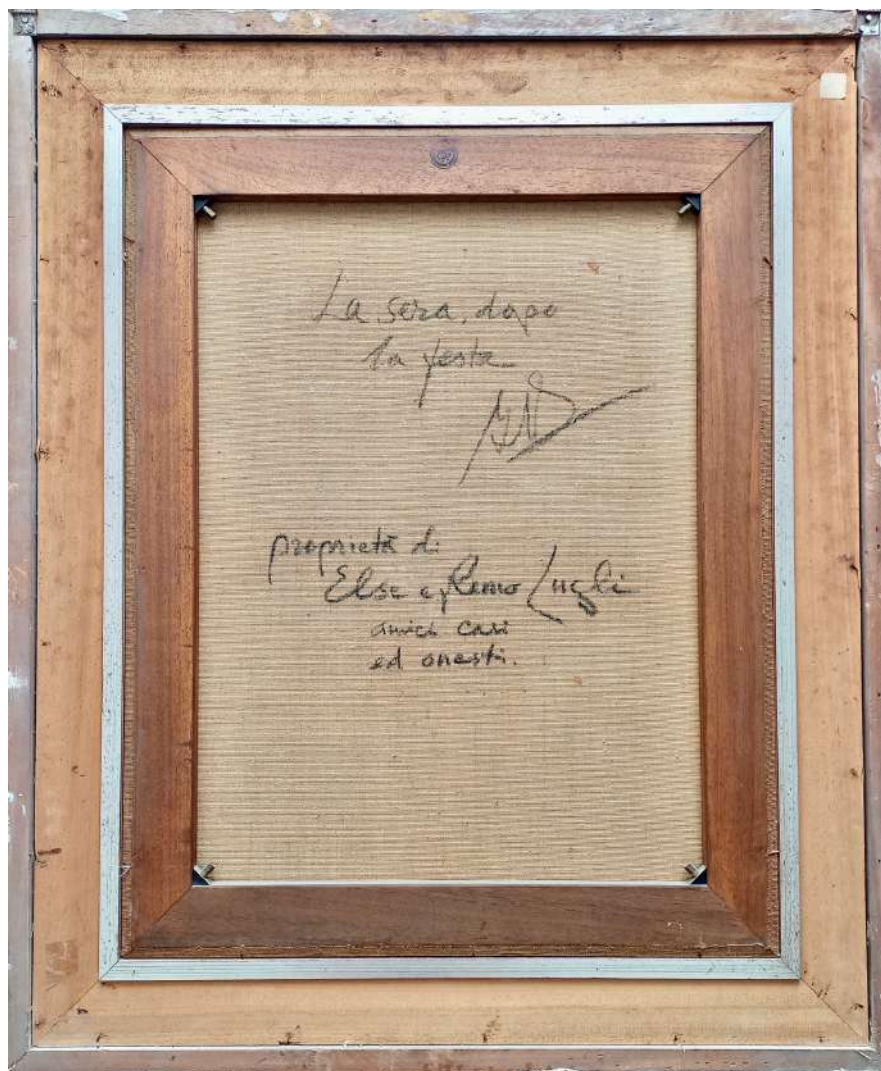 La sera, dopo
la festa
proprietà di
Else e Remo Lugli
amici cari
ed onesti.